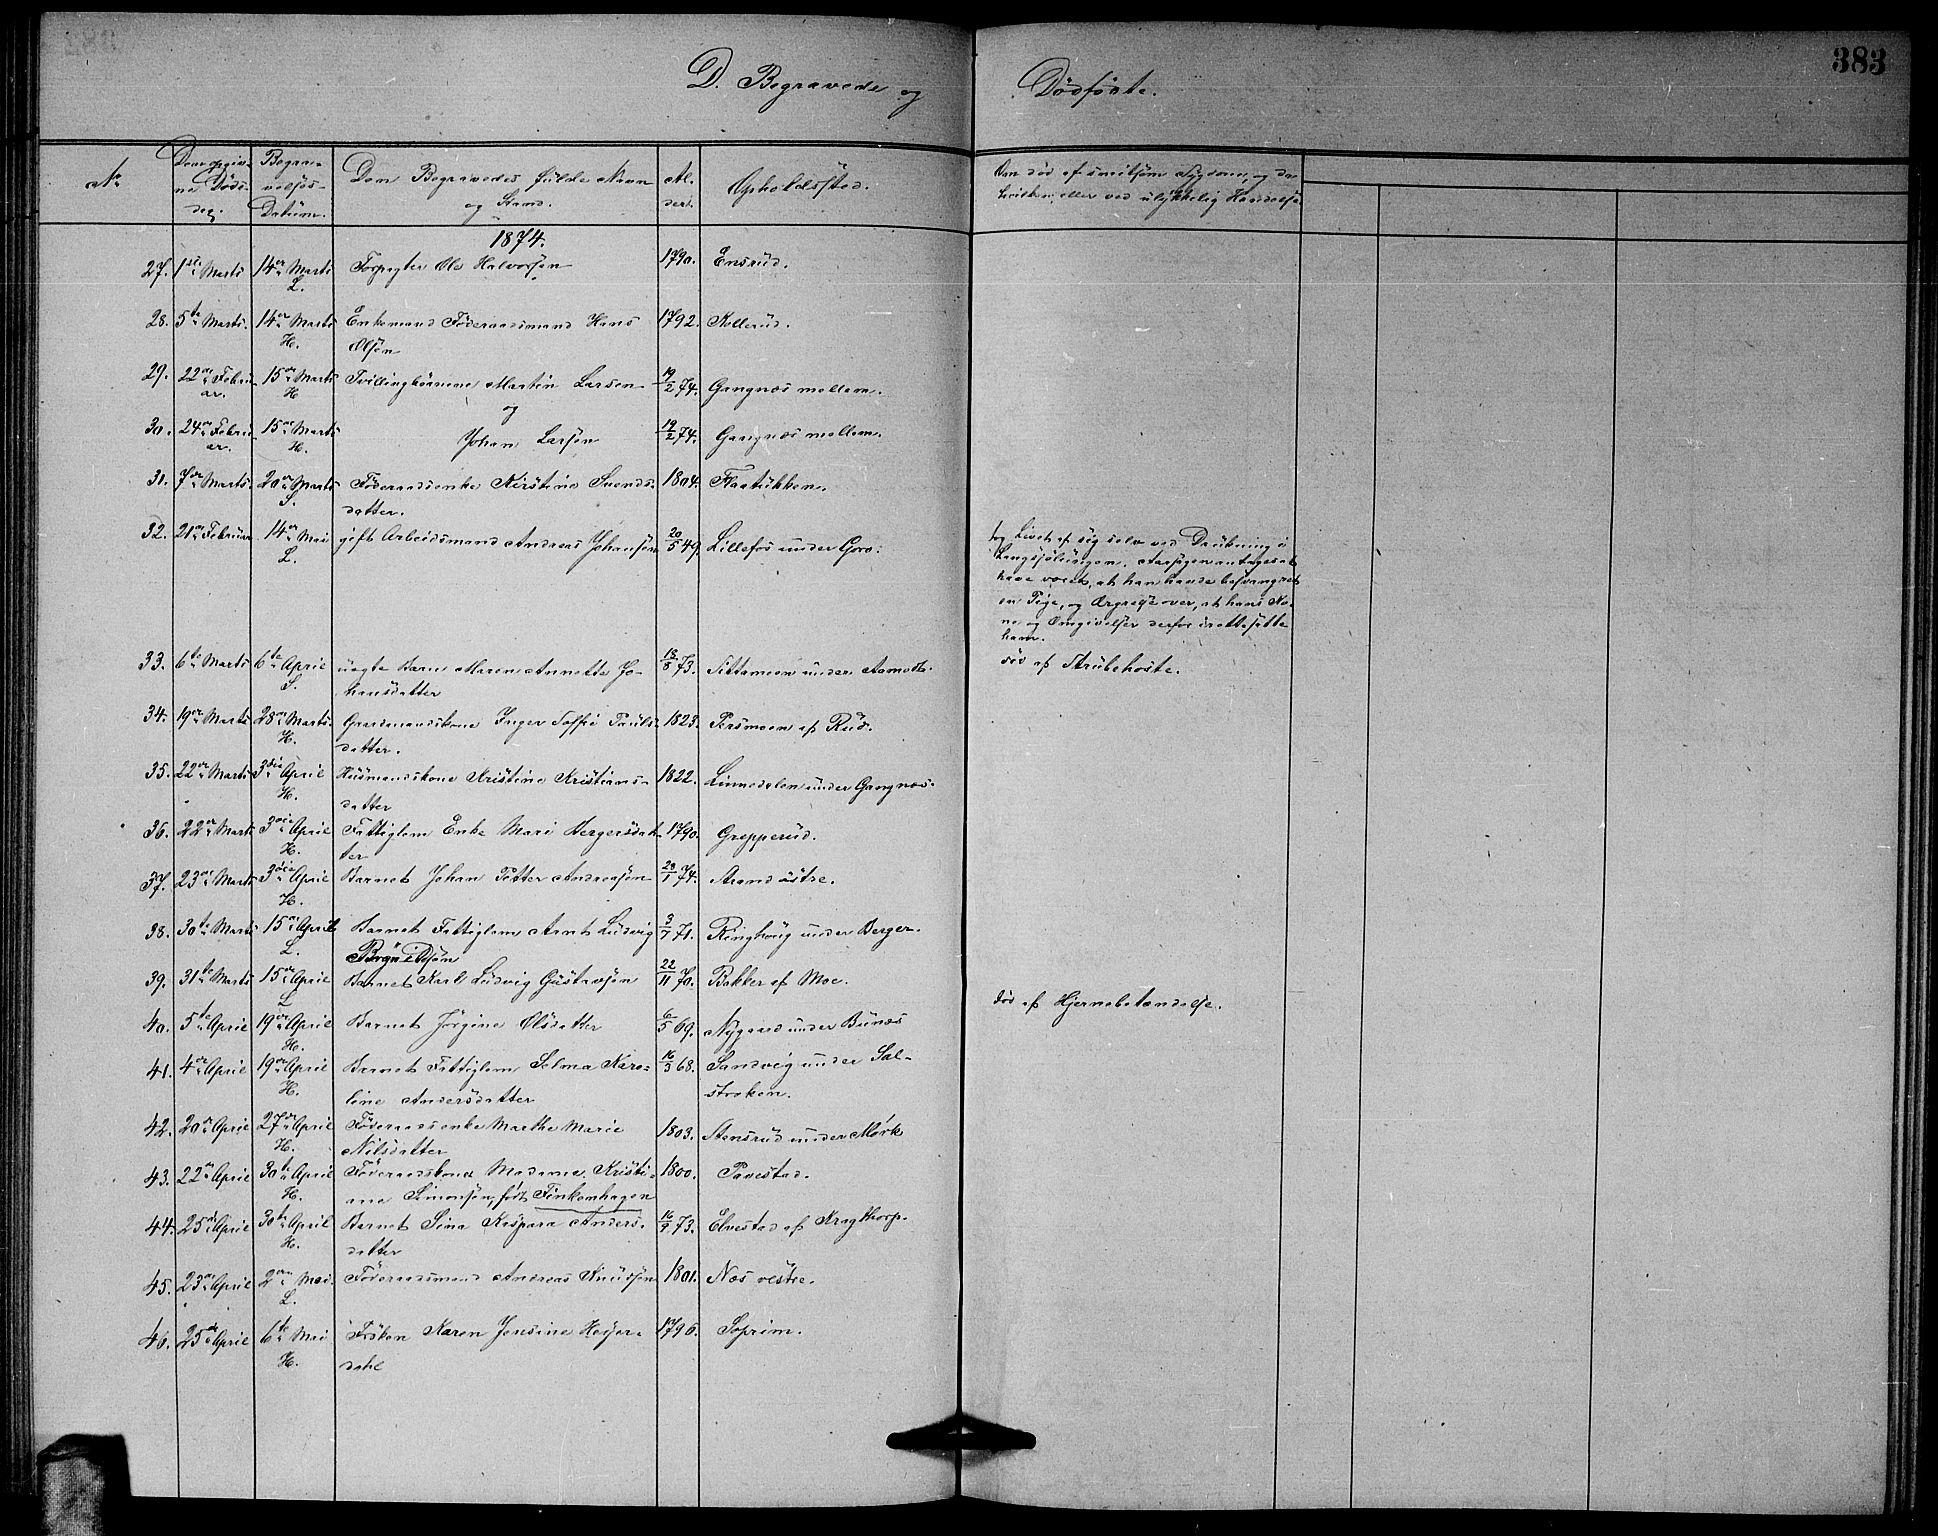 383
D. Begravede og Dødfødte.
No
Den opgiv-
ne Døds-
dag.
Begra-
velses-
Datum.
Den Begravedes fulde Navn
og Stand.
Al-
der.
Opholdssted.
Om død af smitsom Sygdom, og da
hvilken, eller ved ulykkelig Hændelse
1874.
27. 1ste Marts 14de Marts Forpagter Ole Halvorsen 1790. Ensrud.
L.
28. 5te Marts. 14de Marts Enkemand Føderaadsmand Hans 1792. Kollerud.
H. Olsen
29. 22de Febru- 15de Marts Tvillingbørnene Martin Larsen 19/2 74. Gangnæs mellem.
ar. H og
30. 24de Febru- 15de Marts Johan Larsen 19/2 74. Gangnæs mellem.
ar. H.
31. 7de Marts. 20de Marts Føderaadsenke Kirstine Svends- 1804. Flaatükken.
S. datter.
32. 21de Februar 14de Mai gift Arbeidsmand Andreas Johansen 20/5 49. Lillefos under Gro.
L.
tog Livet af sig selv ved Drukning i
Langsjølungen. Aarsagen antages at
have været, at han havde besvangret
en Pige, og Ærgrelse over, at hans Ko-
ne og Omgivelser derfor irettesatte
ham.
33. 6te Marts 6te April uægte Barn Maren Annette Jo- 13/8 73. under Aamodt.
S. hansdatter
død af Strubehoste.
34. 19de Marts 28de Marts. Gaardmandskone Inger Soffie Pauls- 1823. Persmoen af Rud.
H. datter.
35. 22de Marts 3die April Husmandskone Kristine Kristians- 1822. Linnedalen under Gangnæs.
H. datter
36. 22de Marts 3die April Fattiglem Enke Mari Bergersdat- 1790. Grepperud.
H. ter
37. 23de Marts 3die April Barnet Johan Petter Andreasen 20/1 74. Strand østre.
H.
38. 30te Marts 15de April Barnet Fattiglem Arnt Ludvig 3/7 71. Ringhoug under Berger.
L.
39. 31te Marts 15de April Barnet Karl Ludvig Gustavsen 22/11 70. Bakker af Moe.
L
40. 5te April 19de April Barnet Jørgine Olsdatter 6/5 69. Nygaard under Bunæs
H.
død af Hjernebetændelse.
41. 4de April 19de April Barnet Fattiglem Selma Karo- 16/3 68. Sandvig under Sal-
H. line Andersdatter
42. 20de April 27de April Føderaadsenke Marthe Marie 1803. Stensrud under Mørk
H. Nilsdatter
43. 22de April 30te April Føderaadskone Madame Kristi- 1800. Pavestad.
H. ane Simonsen, født Finkenhagen
44. 25de April 30te April Barnet Sina Kaspara Anders- 16/9 73. Elvestad af Kragthorp.
H. datter
45. 23de April 2den Mai. Føderaadsmand Andreas Knudsen 1801. Næs vestre.
L.
46. 25de April 6te Mai Frøken Karen Jensine Heyer- 1796. Soprim.
H. dahl